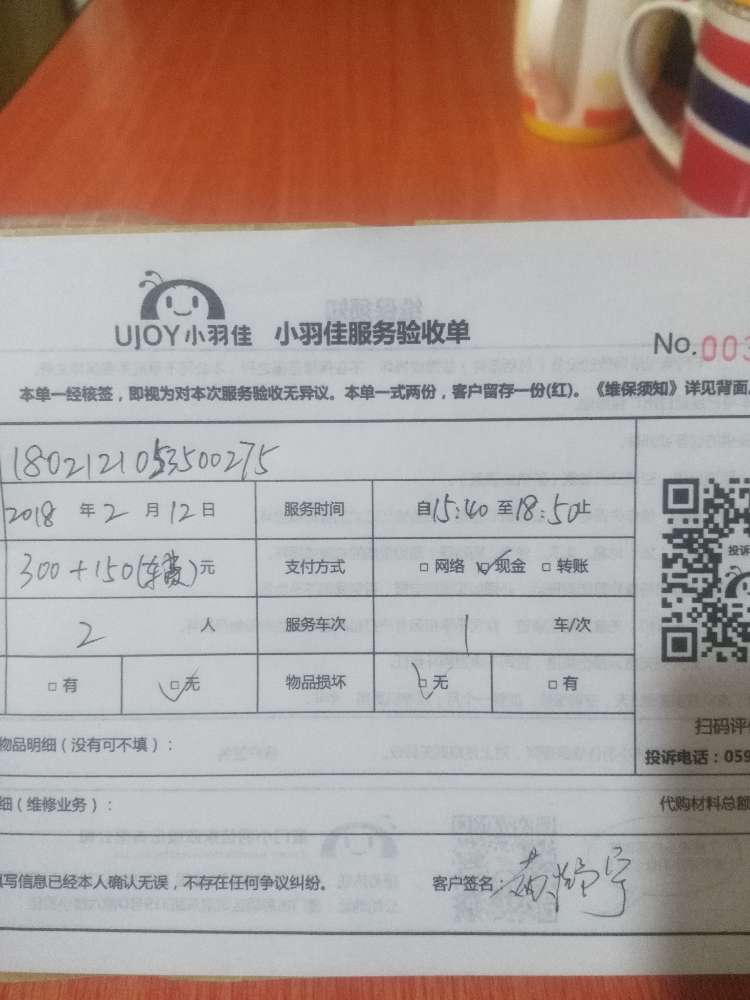 UJOY小羽佳 小羽佳服务验收单
No.003
本单一经核签，即视为对本次服务验收无异议。本单一式两份，客户留存一份(红)。《维保须知》详见背面。
18021210353500275
2018 年 2 月 12 日 服务时间 自15:40 至18:50止
300+150(车费)元 支付方式 □ 网络 □ 现金 □ 转账
2 人 服务车次 1 车/次
□ 有 □ 无 物品损坏 □ 无 □ 有
投诉
扫码评
物品明细（没有可不填）：
投诉电话：059
细（维修业务）：
代购材料总额
写信息已经本人确认无误，不存在任何争议纠纷。 客户签名：